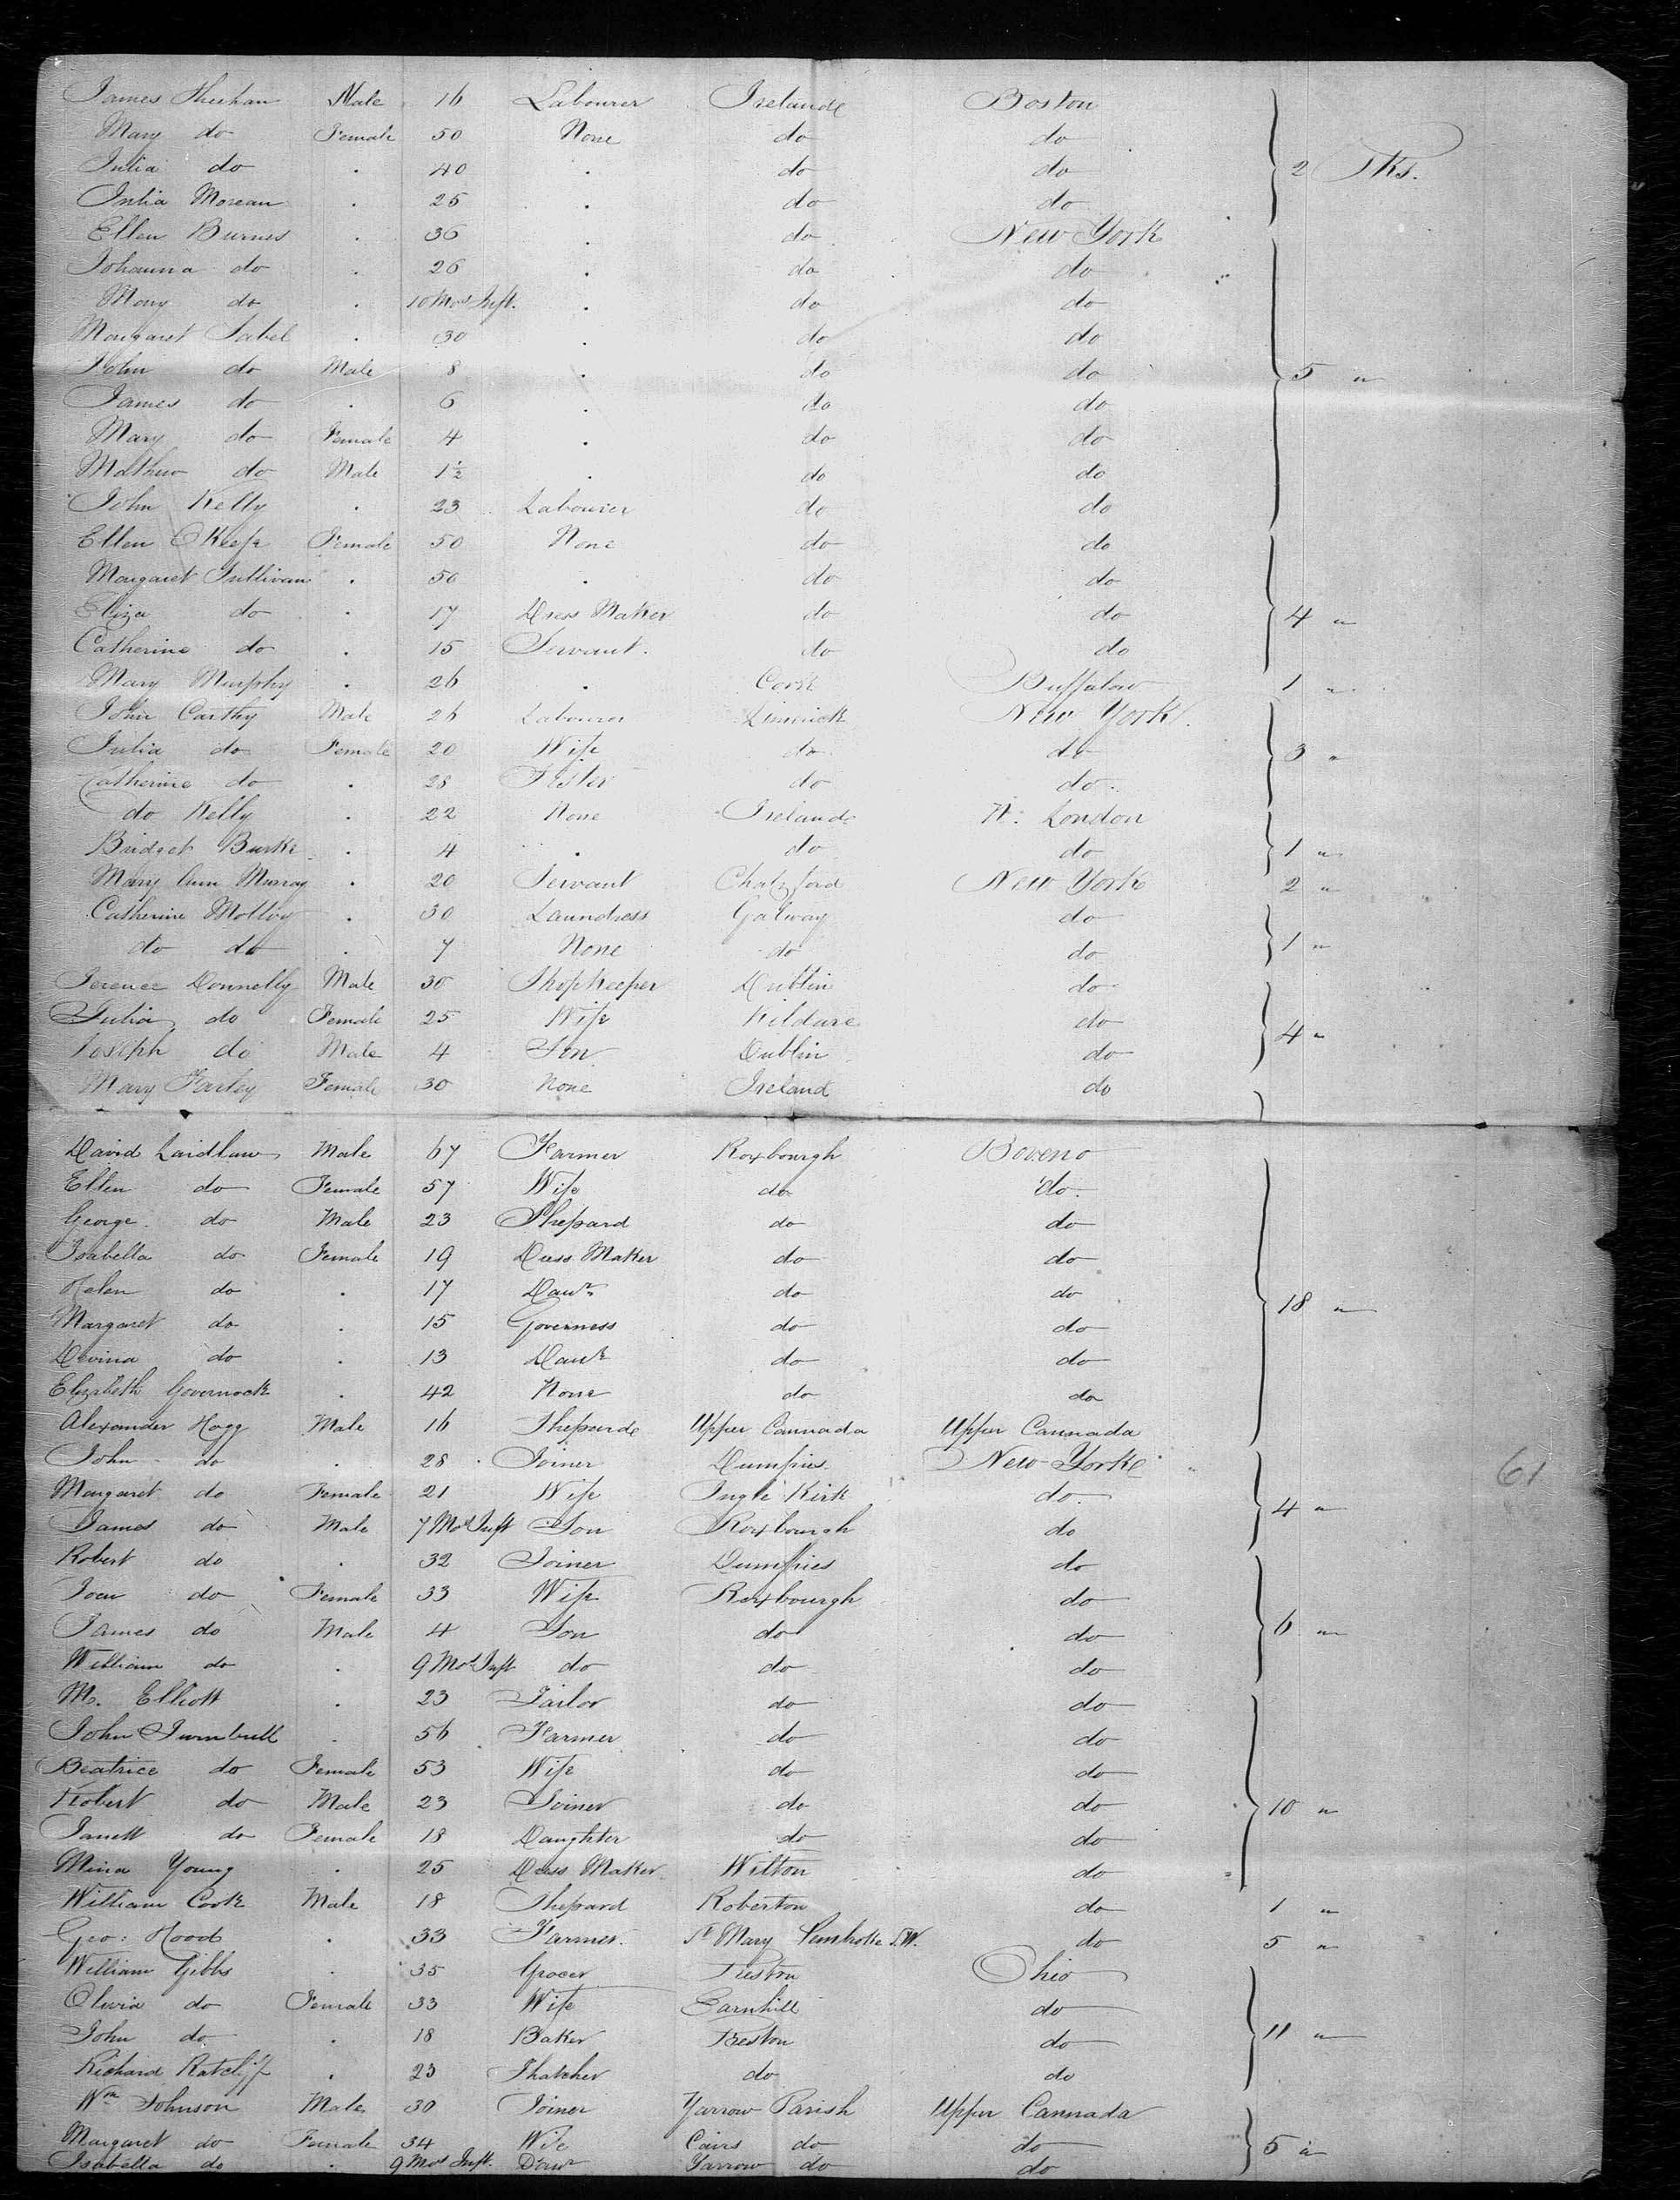 James Sheehan Male 16 Labourer Ireland Boston
Mary do Female 50 None do do
Julia do . 40 . do do 2 Pks.
Julia Morean . 25 . do do
Ellen Burnes . 36 . do New York
Johanna do . 26 . do do
Mary do . 10 Mos Inft. . do do
Margaret . 30 . do do
John do Male 8 . do do 5 "
James do . 6 . do do
Mary do Female 4 . do do
Mathew do Male 1½ . do do
John Kelly . 23 Labourer do do
Ellen OKeefe Female 50 None do do
Margaret Sullivan . 50 . do do
Eliza do . 17 Dress Maker do do 4 "
Catherine do . 15 Servant. do do
Mary Murphy . 26 . Cork Buffalow 1 "
John Carthy Male 26 Labourer Limerick New York.
Julia do Female 20 Wife do do 3 "
Catherine do . 28 Sister do do
do Kelly . 22 None Ireland N. London
Bridget Burke . 4 . do do 1 "
Mary Ann Murray . 20 Servant New York 2 "
Catherine Molloy . 30 Laundress Galway do
do do . 7 None do do 1 "
Terence Donnelly Male 30 Shopkeeper Dublin do
Julia do Female 25 Wife Kildare do
Joseph do Male 4 Son Dublin do 4 "
Mary Farley Female 30 None Ireland do
David Laidlaw Male 67 Farmer Roxbourgh Boveno
Ellen do Female 57 Wife do do.
George do Male 23 Shepard do do
Isabella do Female 19 Dress Maker do do
Helen do . 17 Daur do do 18 "
Margaret do . 15 Governess do do
Devina do . 13 Daur do do
Elizabeth Govenock . 42 None do do
Alexander Hogg Male 16 Sheparde Upper Cannada Upper Cannada
John do . 28 Joiner Dumfries New Yorke
Margaret do Female 21 Wife Ingle Kirk do. 4 "
James do Male 7 Mos Inft Son Roxbourgh do
Robert do . 32 Joiner Dumffries do
do Female 33 Wife Roxbourgh do
James do Male 4 Son do do 6 "
William do . 9 Mos Inft do do do
M. Elliott . 23 Tailor do do
John Turnbull . 56 Farmer do do
Beatrice do Female 53 Wife do do
Robert do Male 23 Joiner do do 10 "
Janett do Female 18 Daughter do do
Mina Young . 25 Dress Maker Wilton do
William Cook Male 18 Shepard Roberton do 1 "
Geo: Hood . 33 Farmer. St Mary do 5 "
William Gibbs . 35 Grocer Preston Ohio
Olivia do Female 33 Wife Earnhill do
John do . 18 Baker Preston do 11 "
Richard Ratcliff . 23 Thatcher do do
Wm Johnson Male 30 Joiner Yarrow Parish Upper Cannada
Margaret do Female 34 Wife Cairs do do 5 "
Isabella do . 9 Mos Inft. Daur Yarrow do do
61